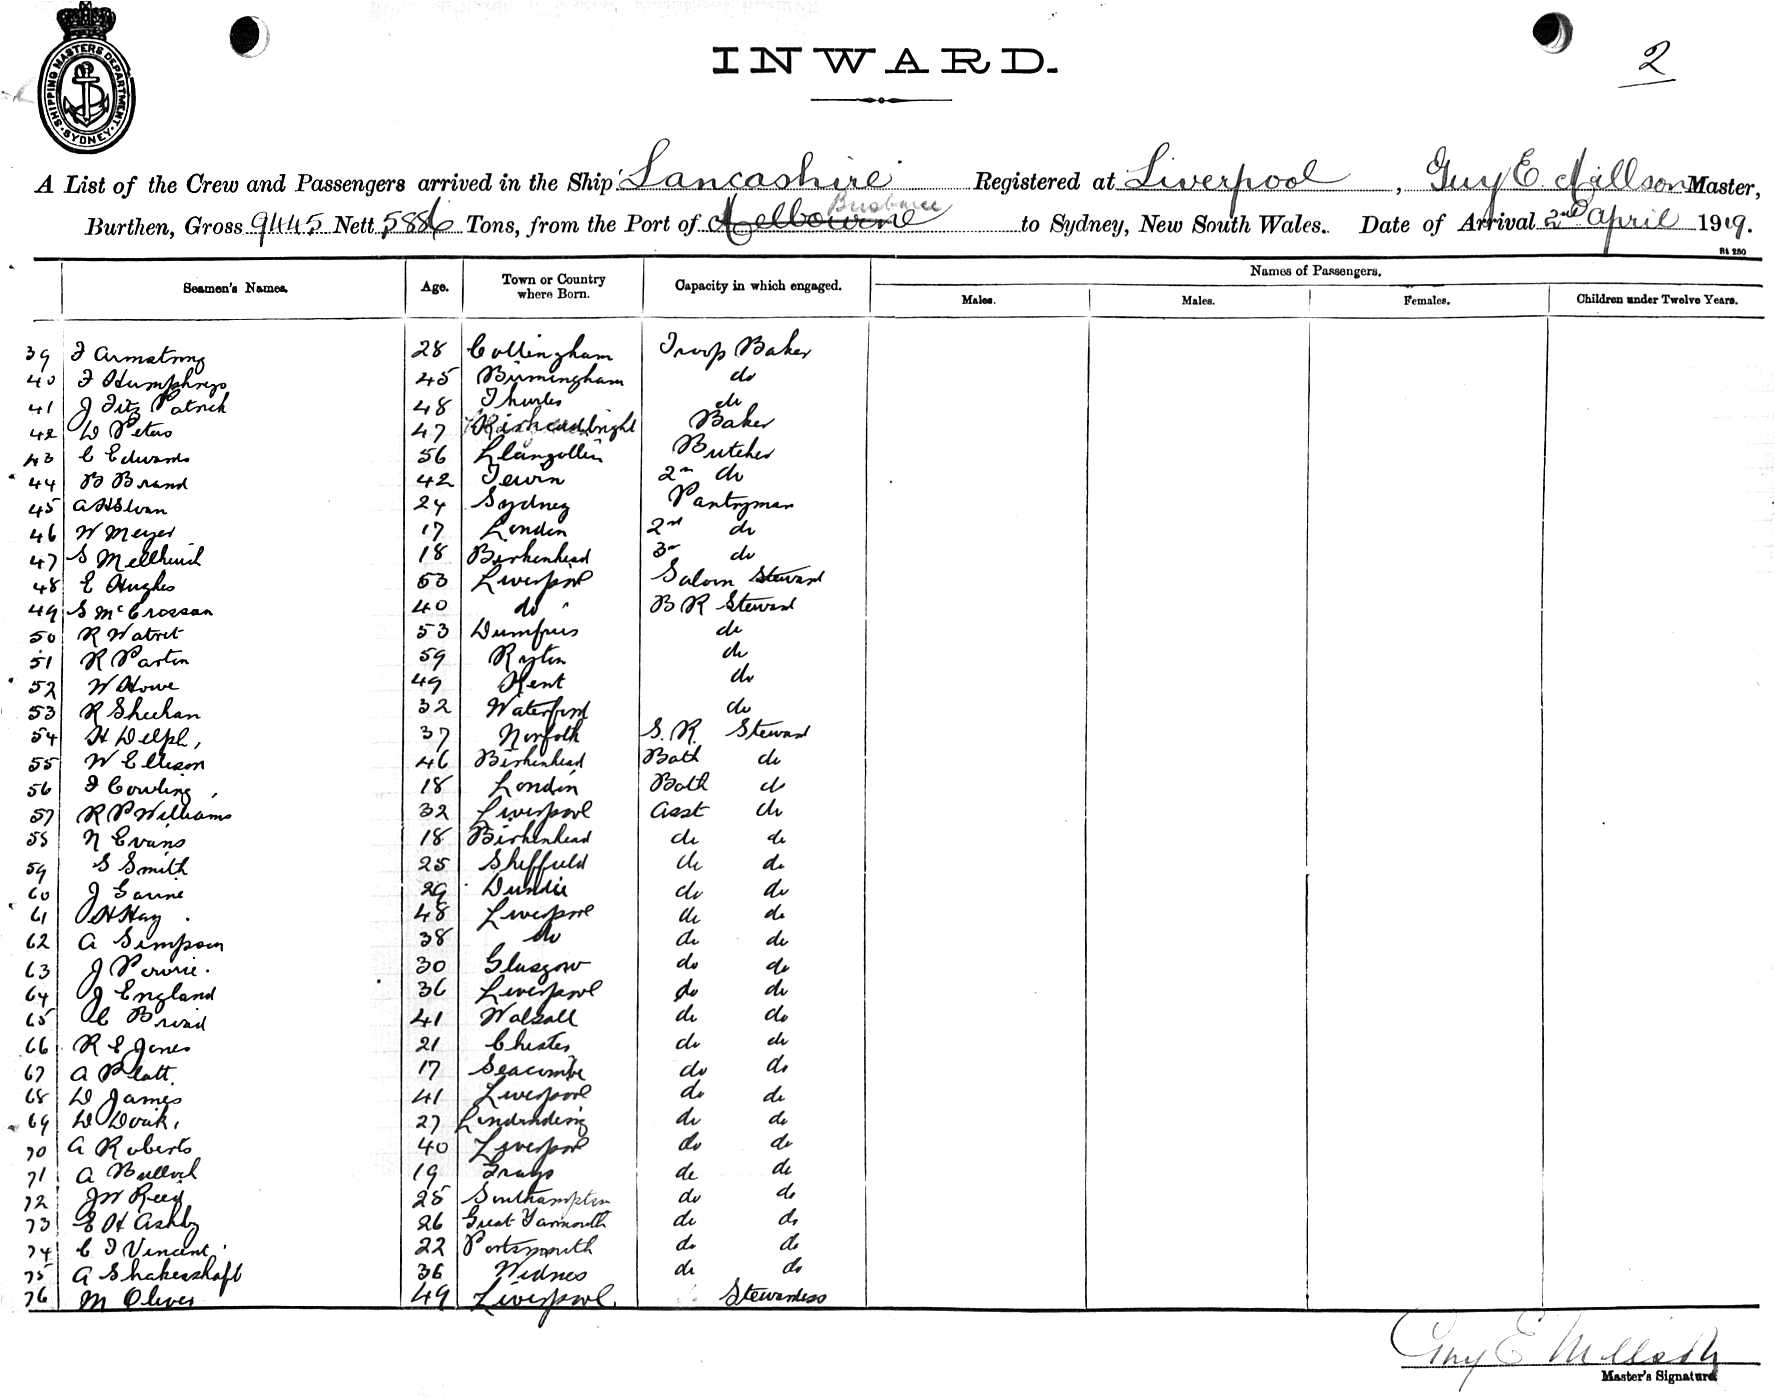 SHIPPING MASTERS DEPARTMENT SYDNEY
INWARD.
2
A List of the Crew and Passengers arrived in the Ship Lancashire Registered at Liverpool, Guy E. Millson Master,
Brisbane
Burthen, Gross 9445 Nett 5886 Tons, from the Port of Melbourne to Sydney, New South Wales. Date of Arrival 2nd April 1919.
Bt 250
Seamen's Names. Age. Town or Country where Born. Capacity in which engaged. Names of Passengers.
Males. Males. Females. Children under Twelve Years.
39 F Armstrong 28 Collingham Troop Baker
40 F Humphreys 45 Birmingham do
41 J Fitz Patrick 48 Thurles do
42 W Peters 47 Kirkcudbright Baker
43 C Edwards 56 Llangollen Butcher
44 B Brand 42 Tewin 2nd do
45 A H Sloan 24 Sydney Pantryman
46 W Meyer 17 London 2nd do
47 S 18 Birkenhead 3rd do
48 E Hughes 53 Liverpool Saloon Steward
49 S McCrossan 40 do B R Steward
50 R Watret 53 Dumfries do
51 R Partin 59 Ryton do
52 W Howe 49 Kent do
53 R Sheehan 32 Waterford do
54 H Delph, 37 Norfolk S. R. Steward
55 W Ellison 46 Birkenhead Bath do
56 F Cowling, 18 London Bath do
57 R P Williams 32 Liverpool Asst do
58 N Evans 18 Birkenhead do do
59 S Smith 25 Sheffield do do
60 J 29 Dundee do do
61 H Hay 48 Liverpool do do
62 A Simpson 38 do do do
63 J Powrie. 30 Glasgow do do
64 J England 36 Liverpool do do
65 C Broad 41 Walsall do do
66 R E Jones 21 Chester do do
67 A Platt. 17 Seacombe do do
68 D James 41 Liverpool do do
69 D Doak, 27 Londonderry do do
70 A Roberts 40 Liverpool do do
71 A Bulloch 19 Grays do do
72 J W Reed 25 Southampton do do
73 E H Ashby 26 Great Yarmouth do do
74 C F Vincent 22 Portsmouth do do
75 A Shakeshaft 36 Widnes do do
76 M Oliver 49 Liverpool. Stewardess
Guy E Millson
Master's Signature